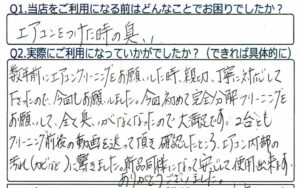 Q1.当店をご利用になる前はどんなことでお困りでしたか？
エアコンをつけた時の臭い
Q2.実際にご利用になっていかがでしたか？（できれば具体的に）
数年前にエアコンクリーニングをお願いした時、親切、丁寧に対応して
下さったので、今回もお願いしました。今回初めて完全分解クリーニングを
お願いして、全く臭いがなくなったので大満足です。2台とも
クリーニング前後の動画を送って頂き確認したところ、エアコン内部の
汚れ（カビなど）に驚きました。新品同様になって安心して使用出来ます。
ありがとうございました。